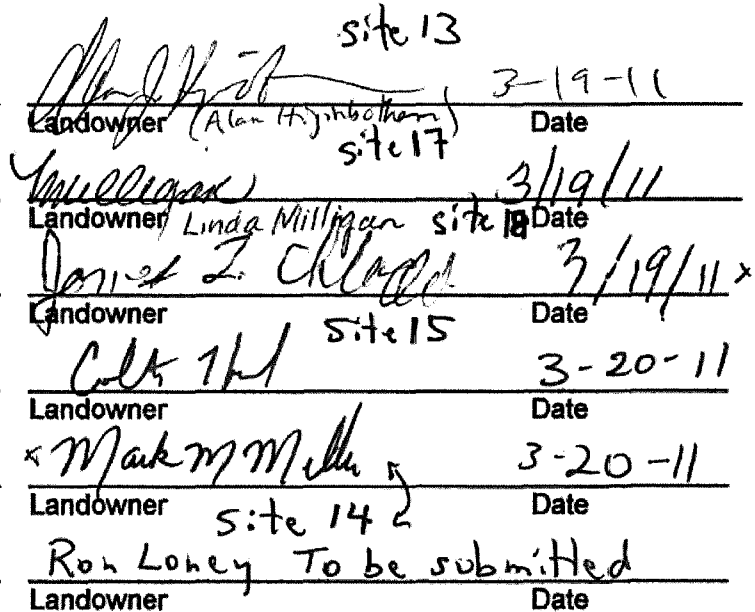 site 13
3-19-11
Landowner (Alan Higinbotham) Date
site 17
Milligan 3/19/11
Landowner Linda Milligan site 18 Date
L. 3/19/11 x
Landowner Date
site 15
3-20-11
Landowner Date
x Mark M Miller 3-20-11
Landowner Date
site 14
Ron Loney To be submitted
Landowner Date